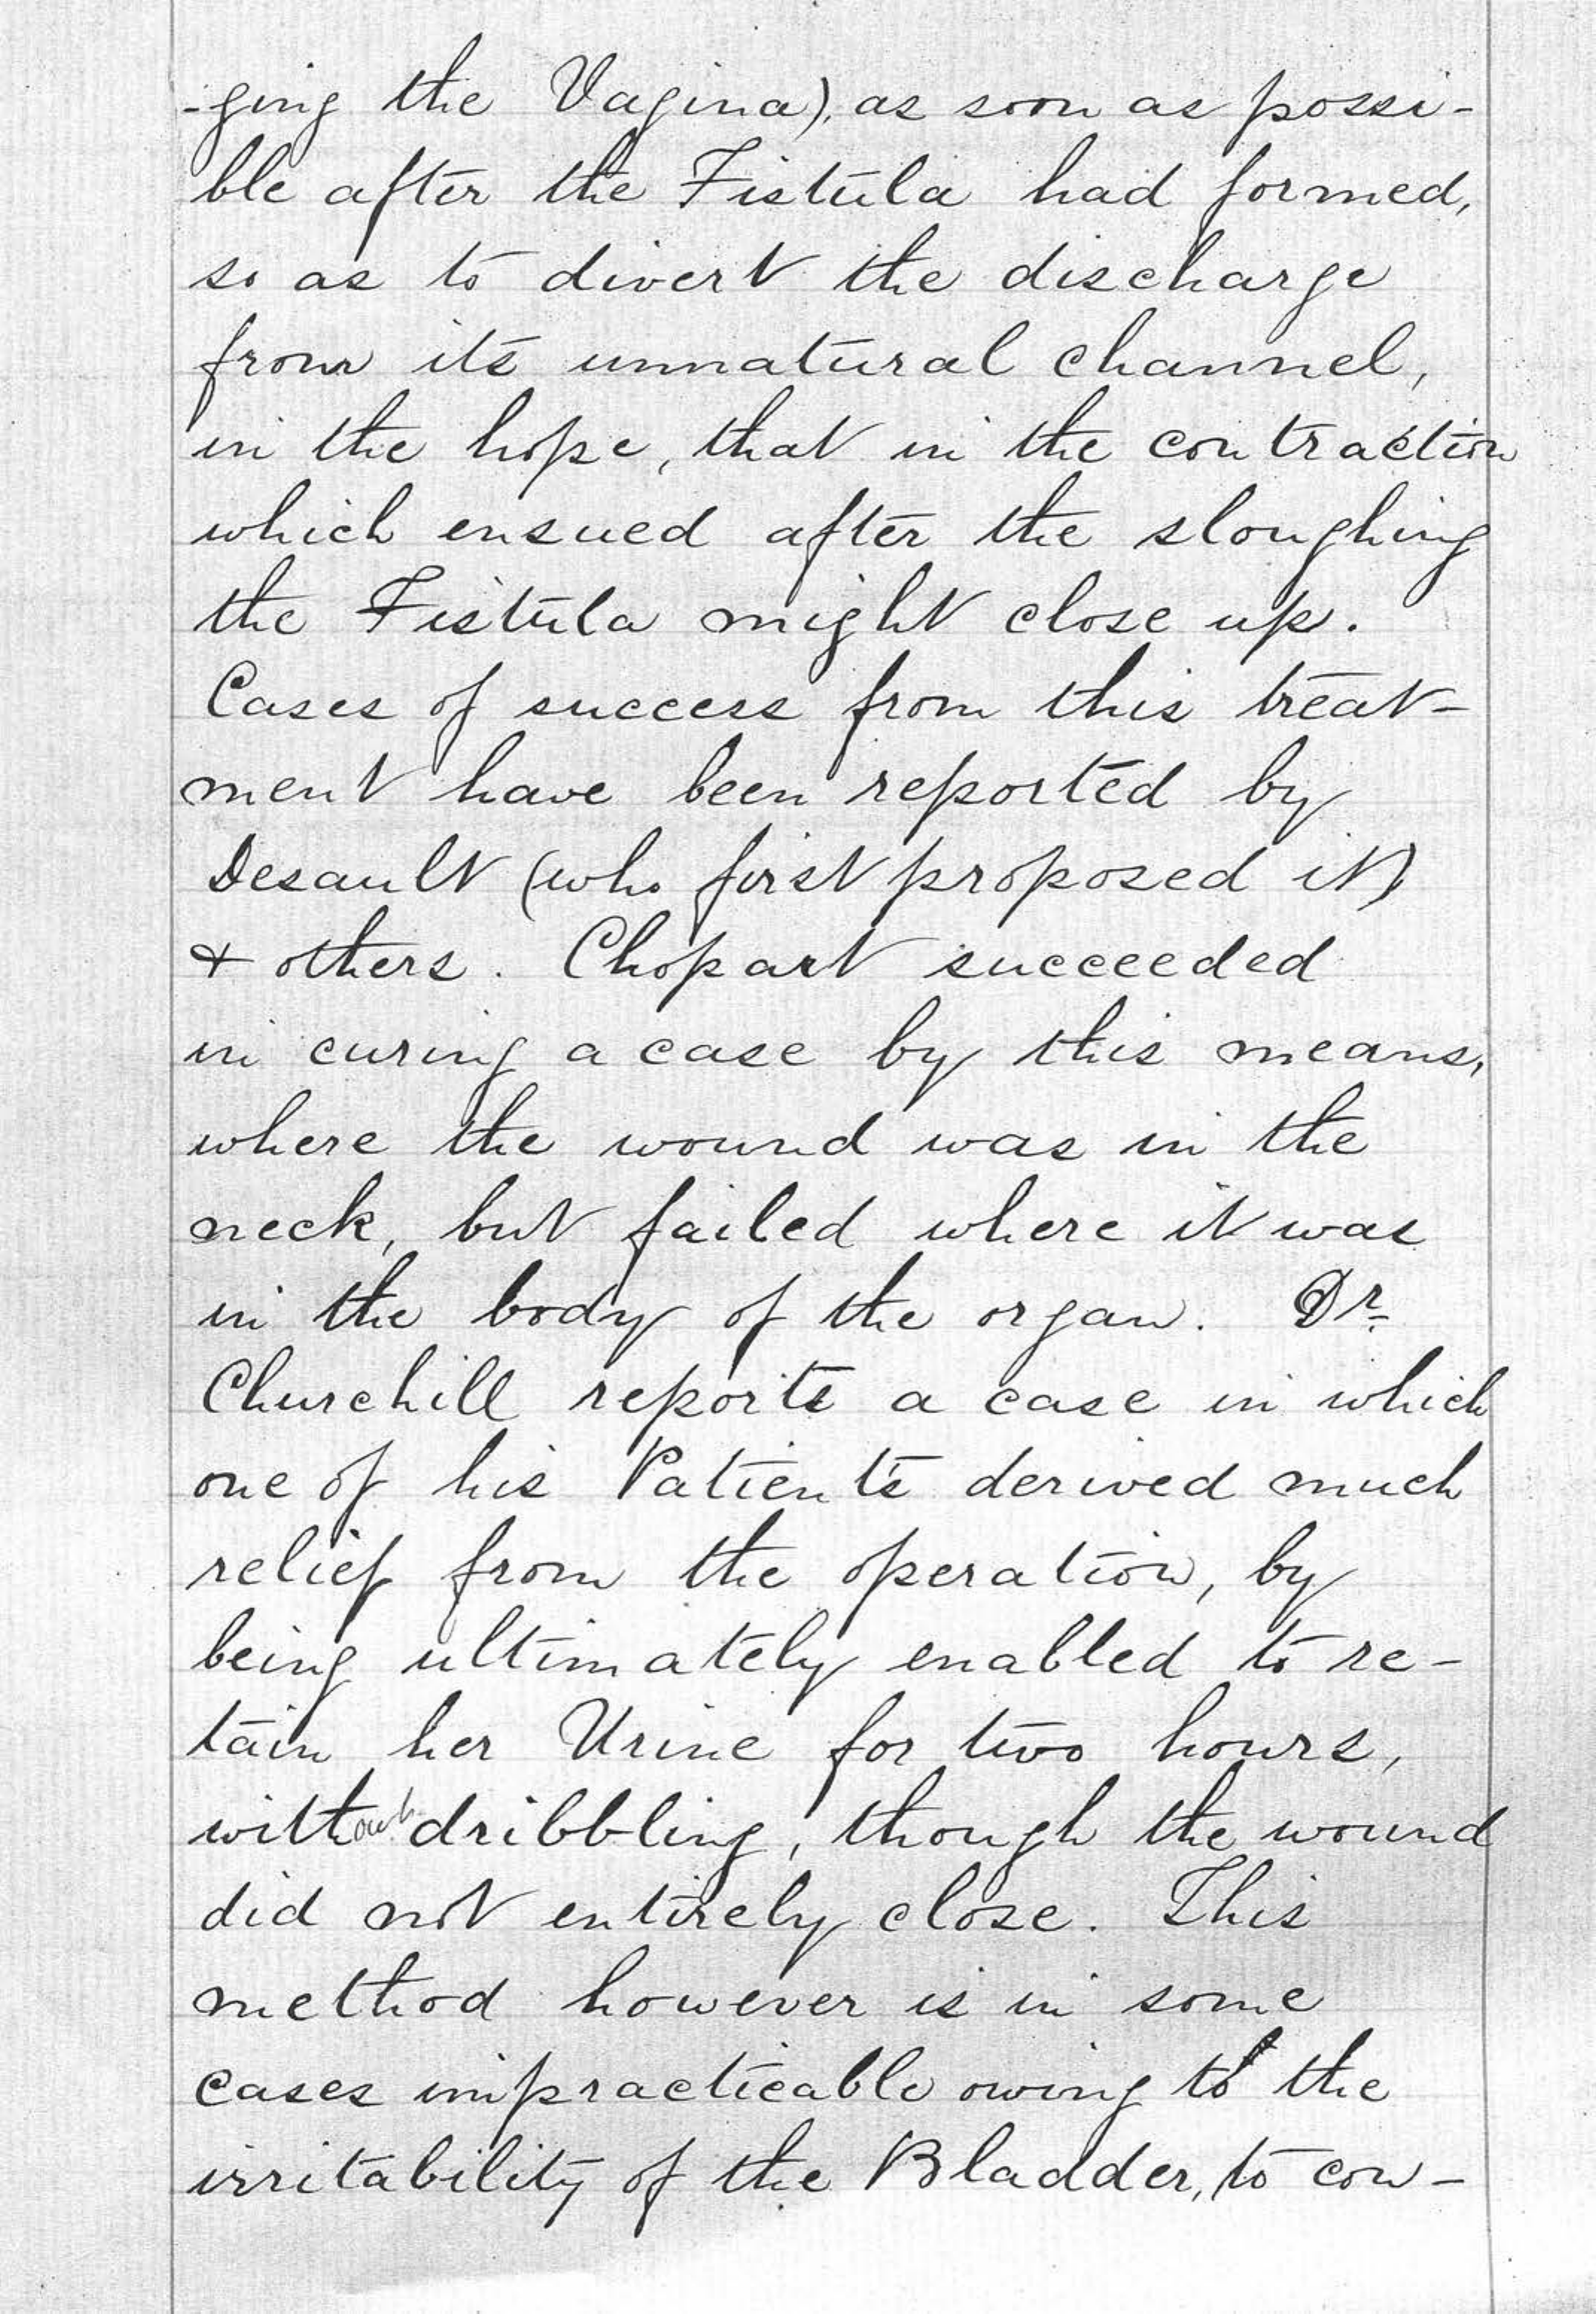 -ging the Vagina), as soon as possi-
ble after the Fistula had formed,
so as to divert the discharge
from its unnatural channel,
in the hope, that in the contraction
which ensued after the sloughing
the Fistula might close up.
Cases of success from this treat-
ment have been reported by
Desault (who first proposed it)
& others. Chopart succeeded
in curing a case by this means,
where the wound was in the
neck, but failed where it was
in the body of the organ. Dr.
Churchill reports a case in which
one of his Patients derived much
relief from the operation, by
being ultimately enabled to re-
tain her Urine for two hours,
without dribbling, though the wound
did not entirely close. This
method however is in some
cases impracticable owing to the
irritability of the Bladder, to con-